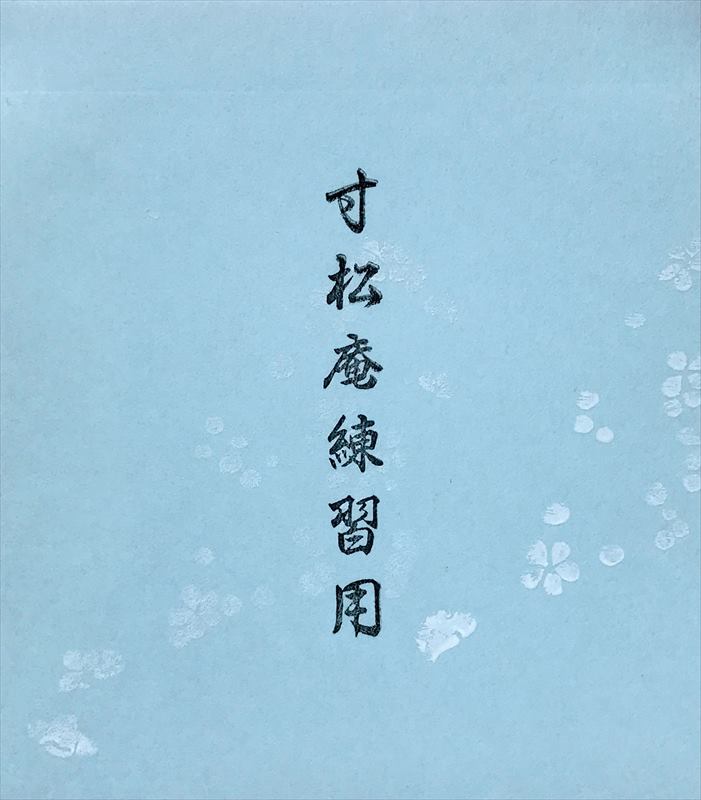 寸松庵練習用